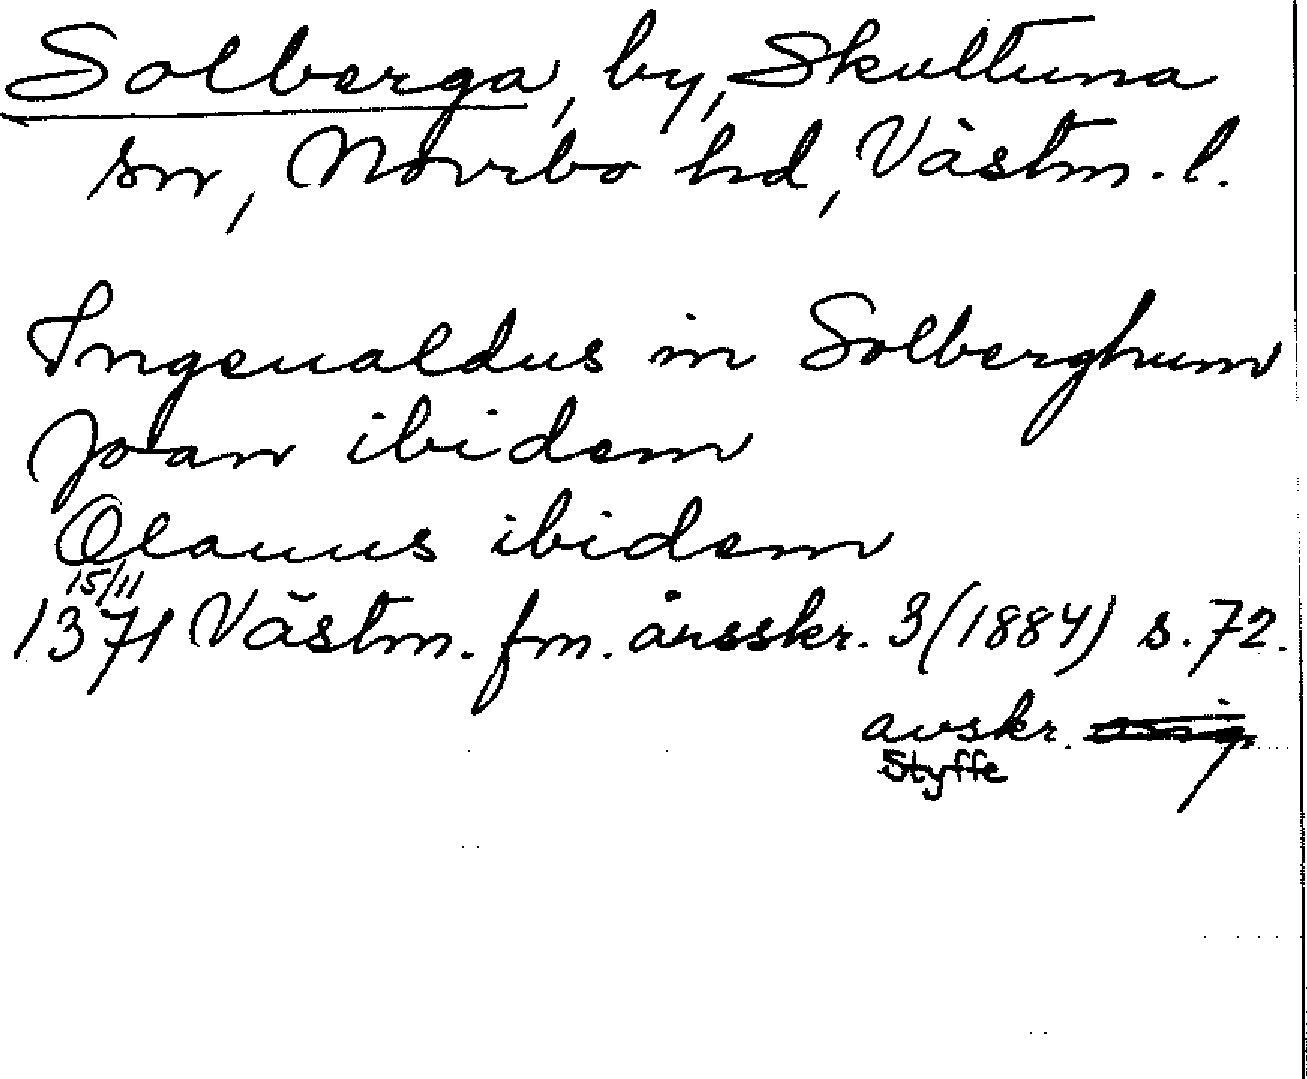 Solberga, by, Skultuna
sn, Norrbo hd, Västm. l.
Ingeualdus in Solberghum
Joan ibidem
Olauus ibidem
15/11
1371 Västm. fm. årsskr. 3 (1884) s. 72.
avskr. orig.
Styffe